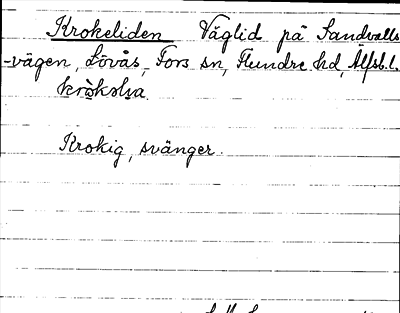 Krokeliden Väglid på Sandvalls
-vägen, Lövås, Fors sn, Flundre hd, Älfsb.l.
Krokig, svänger.